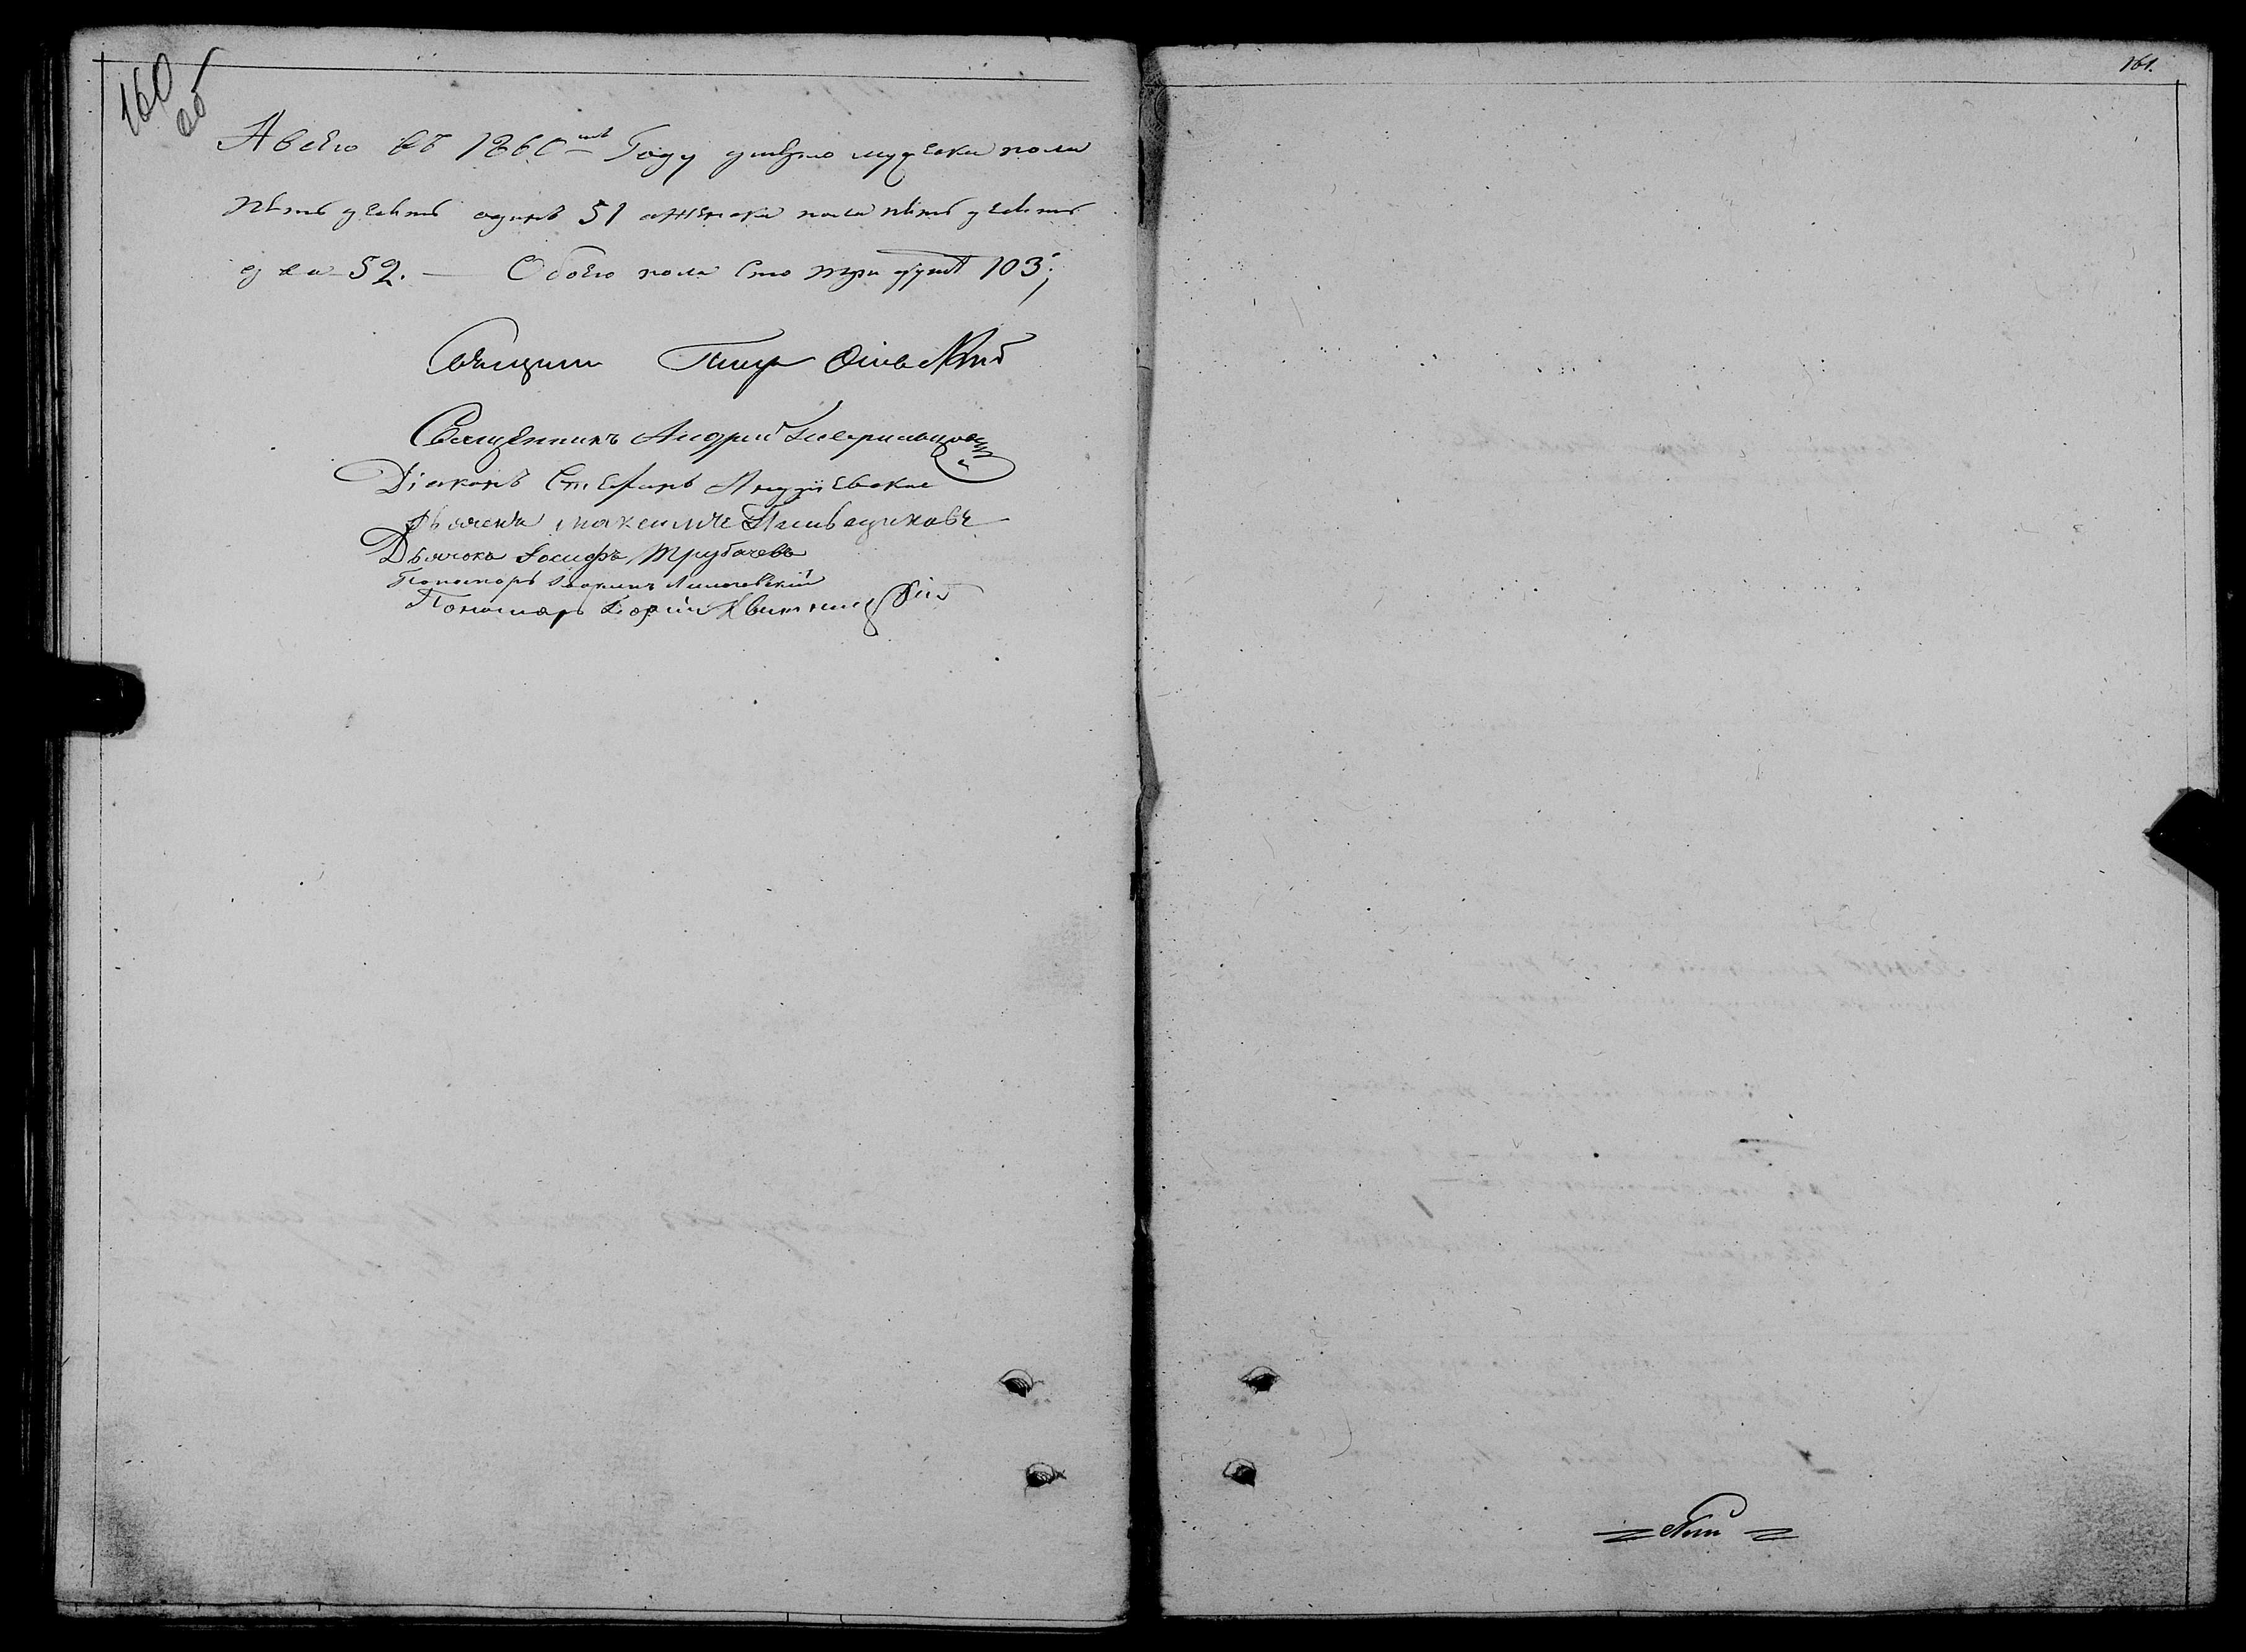 160
об
А всего въ 1860мъ Году умерло мужеска пола
пѣтьдесѣтъ одинъ 51 а женска пола пѣтьдесѣтъ
два 52. — Обоего пола Сто три душъ 103;
Священник Петр
Священникъ Андрей
Діаконъ Стефанъ Андріевскі
Дьячекъ Максимъ
Дьячокъ Іосифъ Трубачевъ
Пономарь
Пономарь Квитницкій
161.